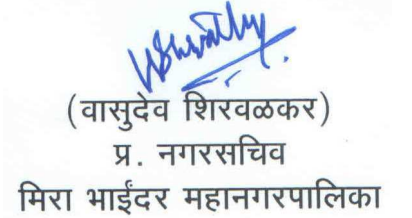 (वासुदेव शिरवळकर)
प्र. नगरसचिव
मिरा भाईंदर महानगरपालिका